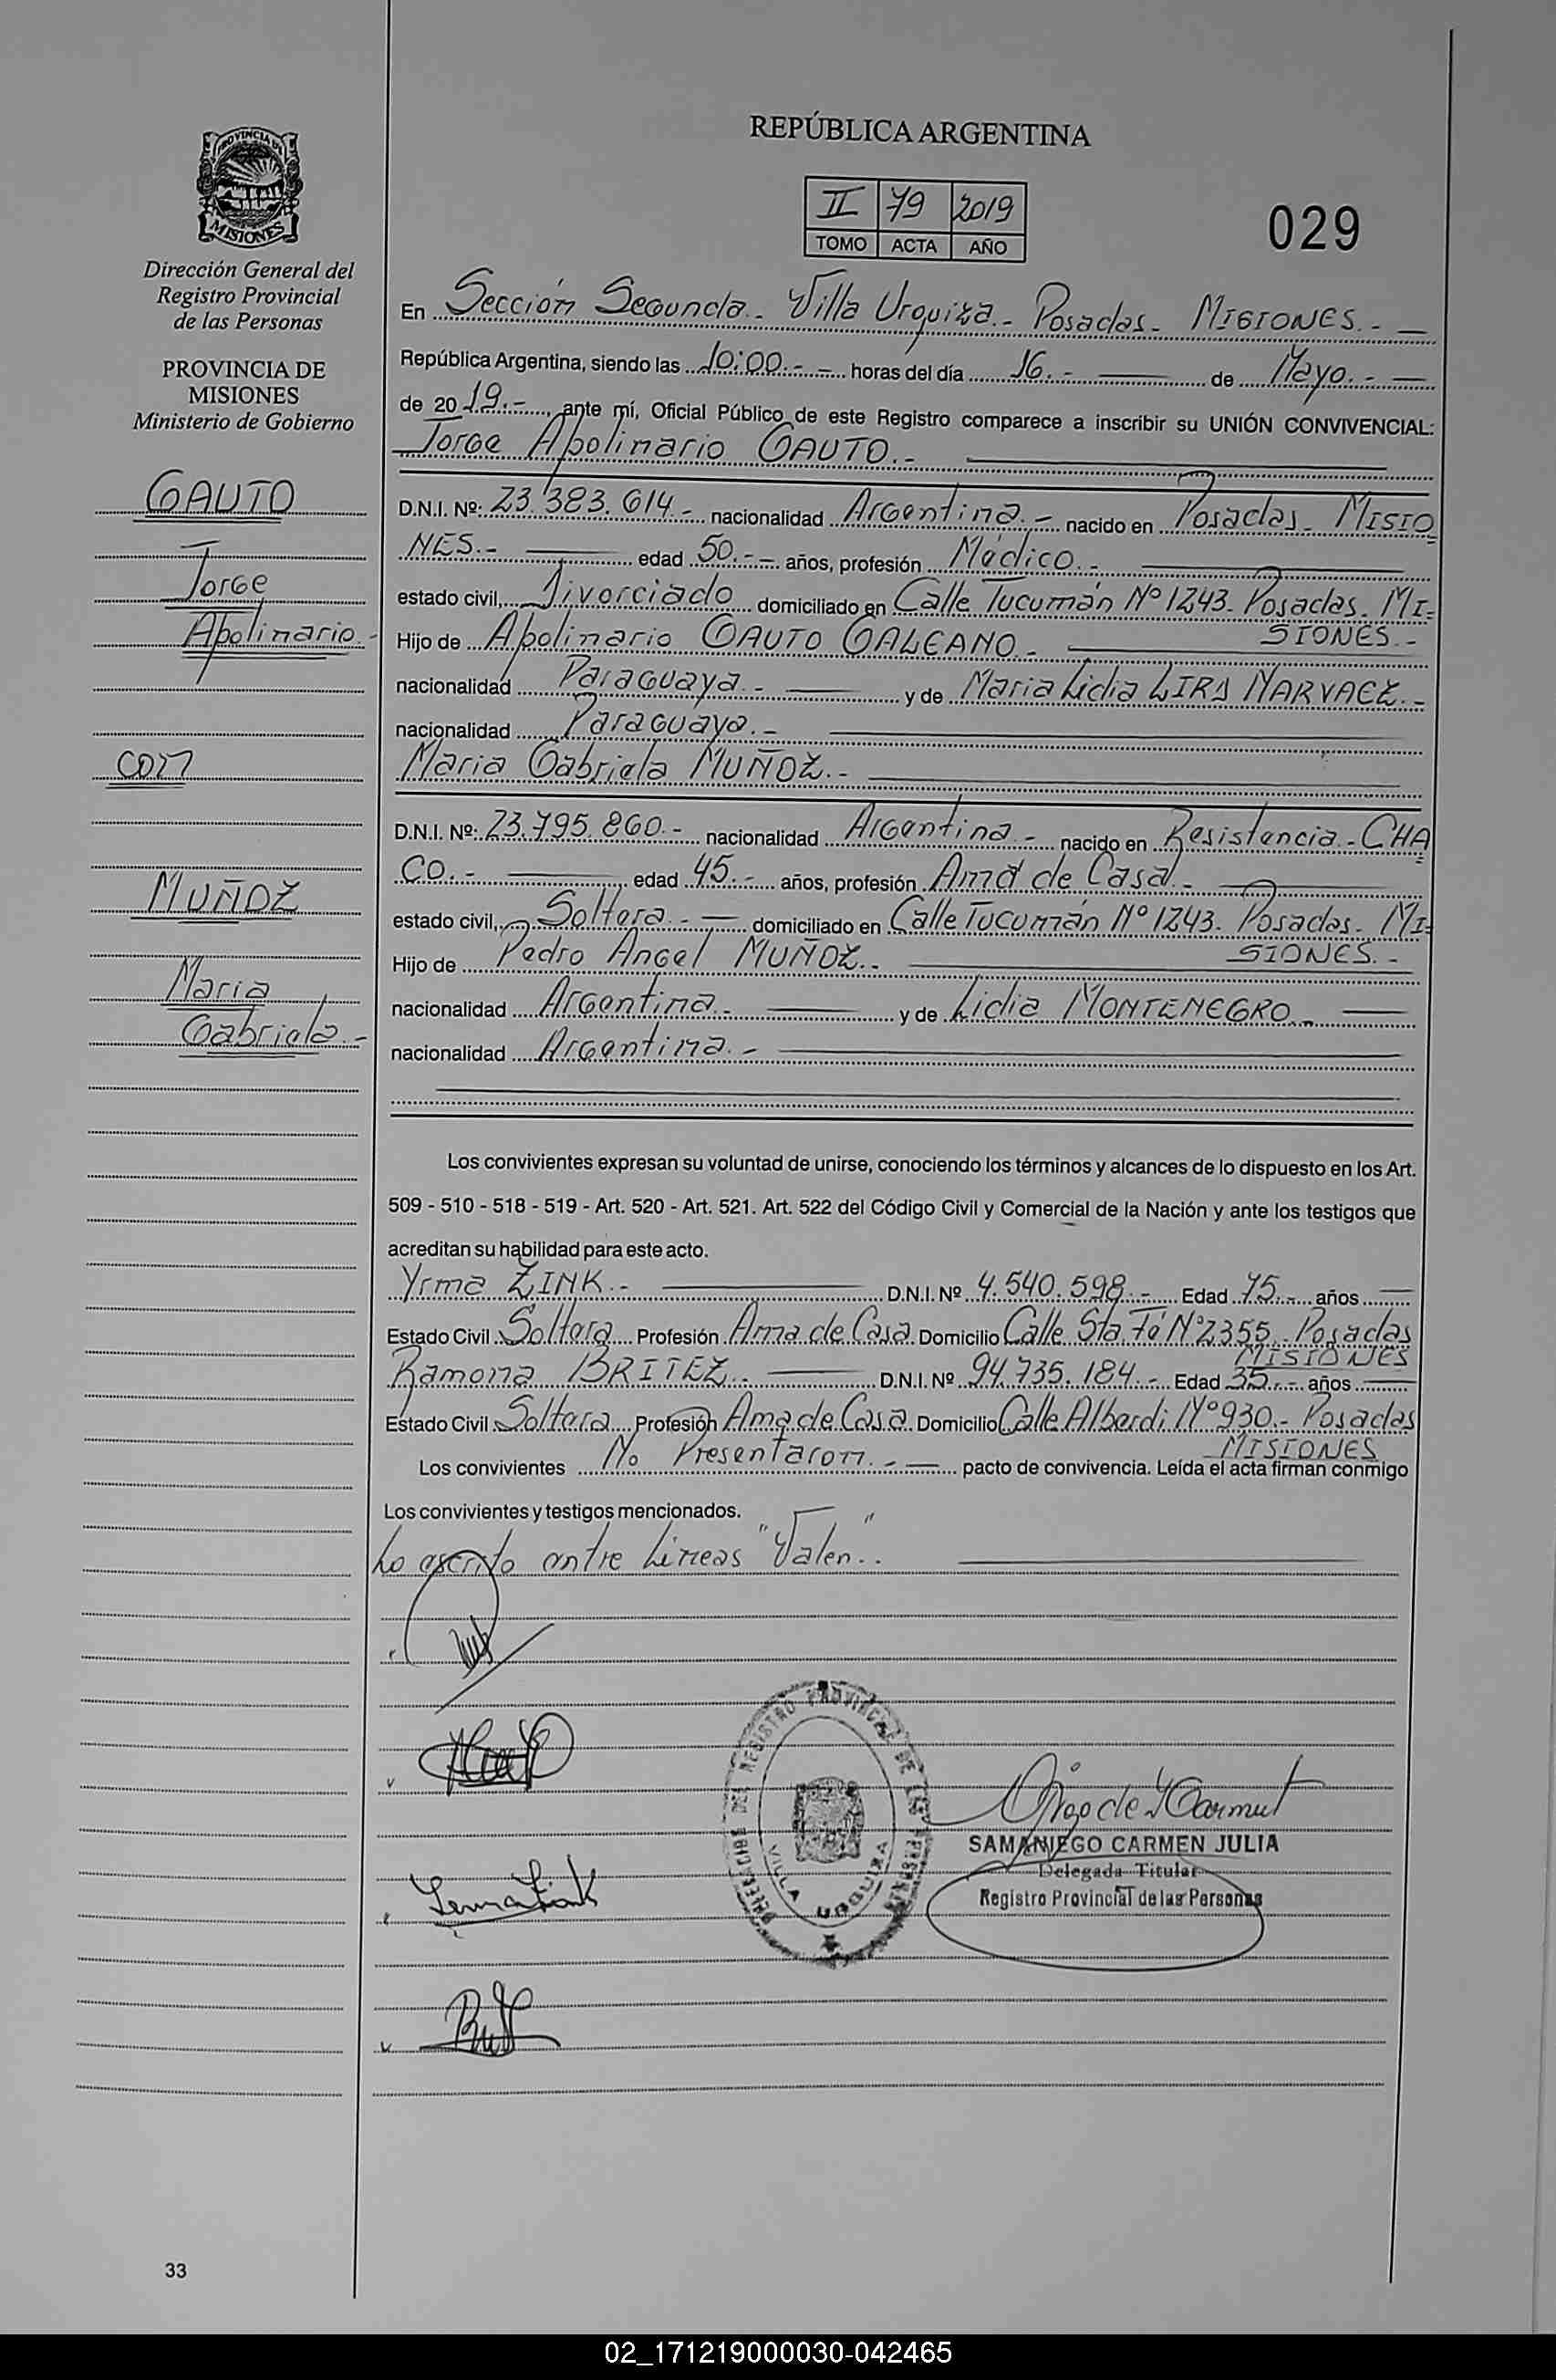 REPÚBLICA ARGENTINA
PROVINCIA DE
MISIONES
II 79 2019
TOMO ACTA AÑO
029
Dirección General del
Registro Provincial
de las Personas
PROVINCIA DE
MISIONES
Ministerio de Gobierno
GAUTO
Jorge
Apolinario.-
con
MUÑOZ
Maria
Gabriela.-
En Sección Segunda.- Villa Urquiza.- Posadas.- MISIONES.-
República Argentina, siendo las 10:00.- horas del día 16.- de Mayo.-
de 2019.-, ante mí, Oficial Público de este Registro comparece a inscribir su UNIÓN CONVIVENCIAL:
Jorge Apolinario GAUTO.-
D.N.I. Nº: 23.383.614.- nacionalidad Argentina.- nacido en Posadas- MISIO
NES.- edad 50.- años, profesión Médico.-
estado civil, Divorciado domiciliado en Calle Tucumán Nº 1243- Posadas- MI=
SIONES.-
Hijo de Apolinario GAUTO GALEANO.-
nacionalidad Paraguaya.- y de Maria Lidia LIRD NARVAEZ.-
nacionalidad Paraguaya.-
Maria Gabriela MUÑOZ.-
D.N.I. Nº: 23.795.860.- nacionalidad Argentina.- nacido en Resistencia.- CHA
CO.- edad 45.- años, profesión Ama de Casa.-
estado civil, Soltera.- domiciliado en Calle Tucumán Nº 1243- Posadas- MI=
SIONES.-
Hijo de Pedro Angel MUÑOZ.-
nacionalidad Argentina.- y de Lidia MONTENEGRO.-
nacionalidad Argentina.-
Los convivientes expresan su voluntad de unirse, conociendo los términos y alcances de lo dispuesto en los Art.
509 - 510 - 518 - 519 - Art. 520 - Art. 521. Art. 522 del Código Civil y Comercial de la Nación y ante los testigos que
acreditan su habilidad para este acto.
Yrma ZINK.- D.N.I. Nº 4.540.598.- Edad 75.- años
Estado Civil Soltera Profesión Ama de Casa Domicilio Calle Sta. Fé Nº 2355.- Posadas
MISIONES
Ramona BRITEZ.- D.N.I. Nº 94.735.184.- Edad 35.- años
Estado Civil Soltera Profesión Ama de Casa Domicilio Calle Alberdi Nº 930.- Posadas
MISIONES
Los convivientes No Presentaron.- pacto de convivencia. Leída el acta firman conmigo
Los convivientes y testigos mencionados.
Lo escrito entre Líneas "Valen".-
DELEGACION DEL REGISTRO PROVINCIAL DE LAS PERSONAS
VILLA URQUIZA
SAMANIEGO CARMEN JULIA
Delegada Titular
Registro Provincial de las Personas
33
02_171219000030-042465